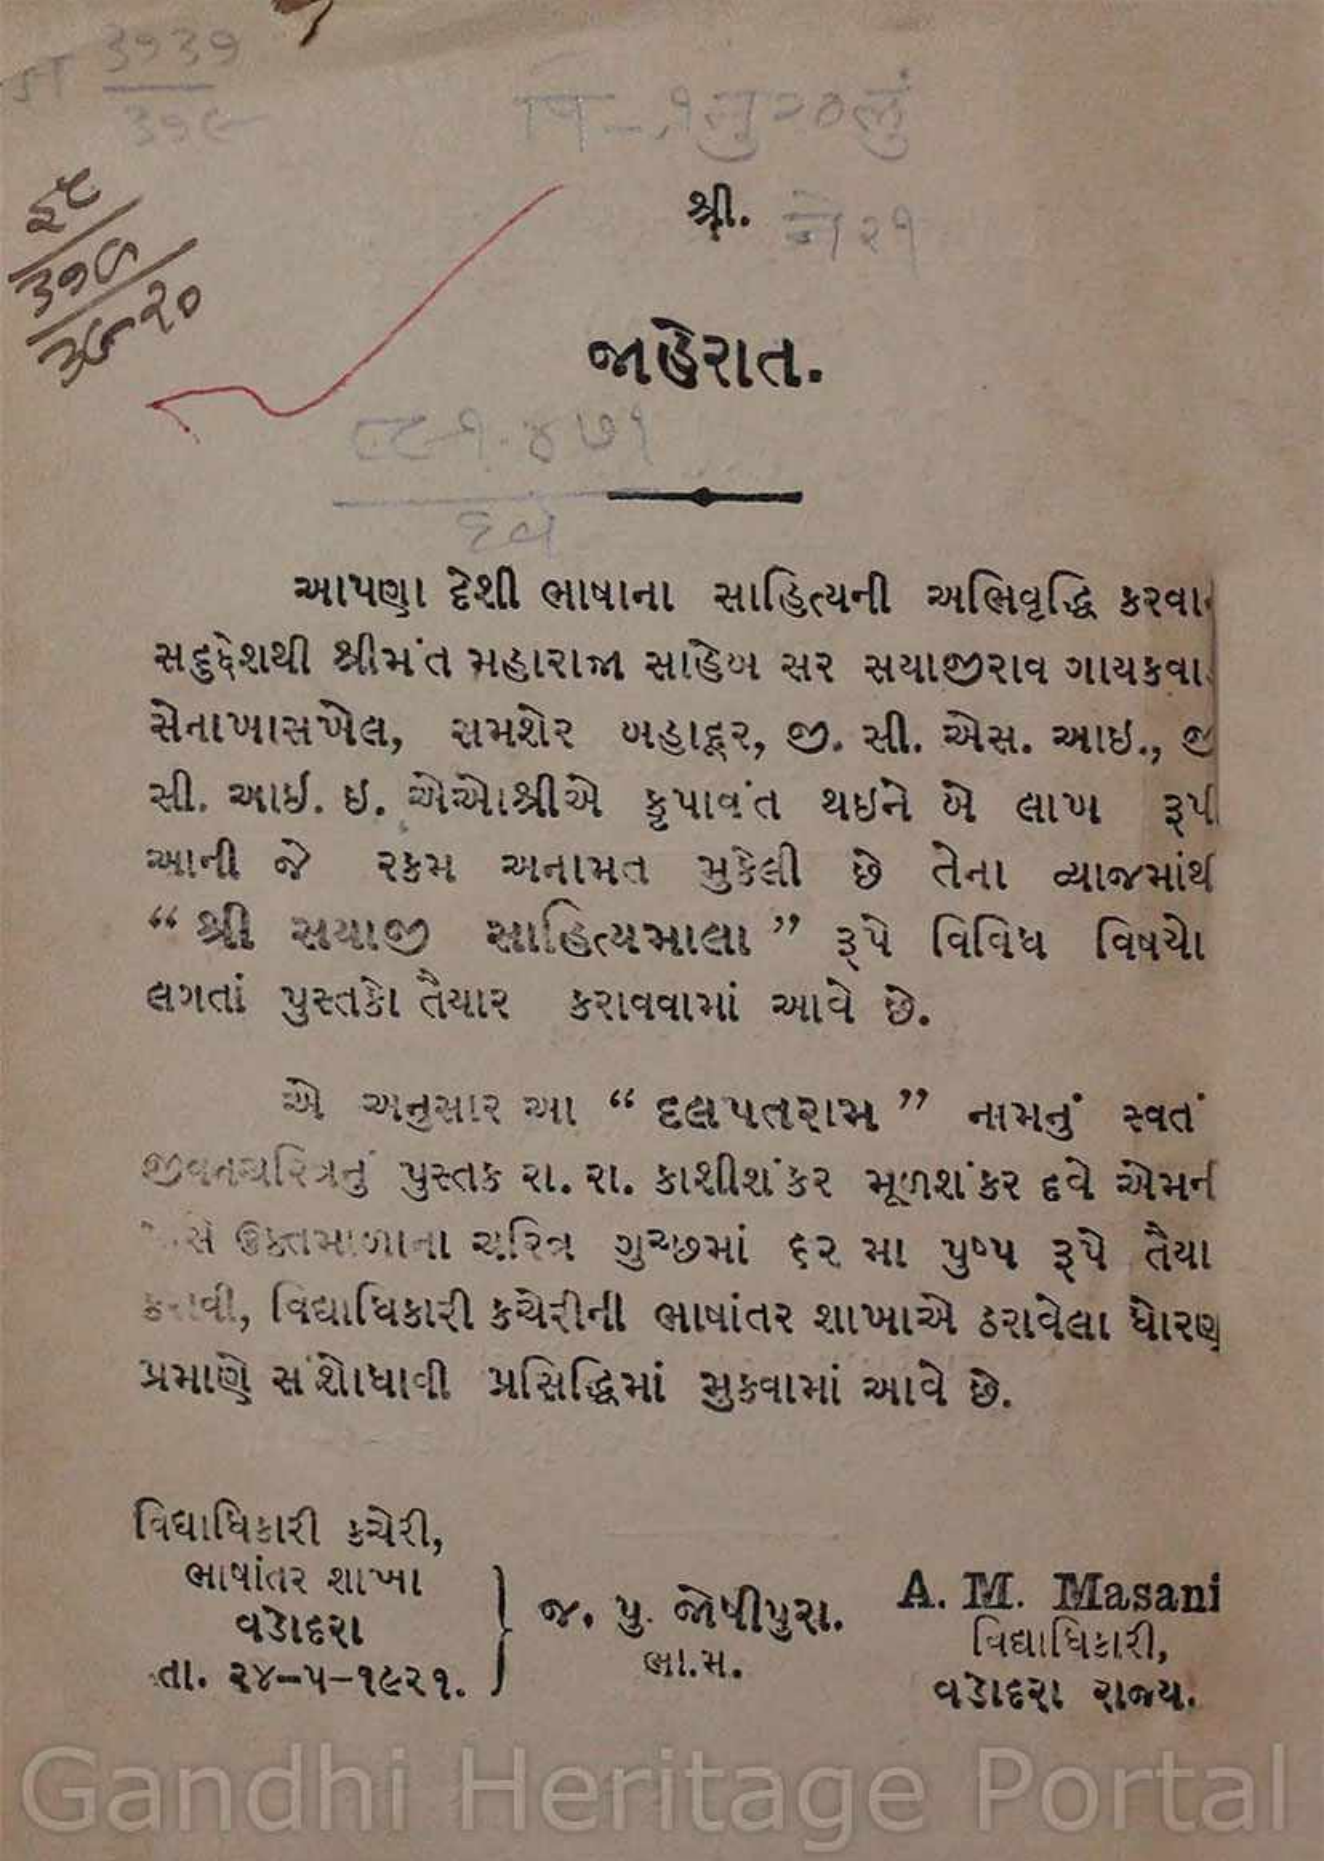 ૩૧૩૧
૩૧૯
૨૯
૩૧૯
શ્રી.
ને ૨૧
જાહેરાત.
આપણા દેશી ભાષાના સાહિત્યની અભિવૃદ્ધિ કરવા
સદ્દુદેશથી શ્રીમંત મહારાજા સાહેબ સર સયાજીરાવ ગાયકવા
સેનાખાસખેલ, સમશેર બહાદૂર, જી. સી. એસ. આઇ., જી
સી. આઈ. ઇ. એઓશ્રીએ કૃપાવંત થઇને બે લાખ રૂપી
આની જે રકમ અનામત મુકેલી છે તેના વ્યાજમાંથ
“ શ્રી સયાજી સાહિત્યમાલા ” રૂપે વિવિધ વિષયો
લગતાં પુસ્તકો તૈયાર કરાવવામાં આવે છે.
એ અનુસાર આ “ દલપતરામ ” નામનું સ્વતં
જીવનચરિત્રનું પુસ્તક રા. રા. કાશીશંકર મૂળશંકર દવે એમન
સે ઉક્તમાળાના ચરિત્ર ગુચ્છમાં ૬૨ મા પુષ્પ રૂપે તૈયા
કરાવી, વિદ્યાધિકારી કચેરીની ભાષાંતર શાખાએ ઠરાવેલા ધોરણ
પ્રમાણે સંશોધાવી પ્રસિદ્ધિમાં મુકવામાં આવે છે.
વિદ્યાધિકારી કચેરી,
ભાષાંતર શાખા
વડોદરા
તા. ૨૪–૫–૧૯૨૧.
જ. પુ. જોષીપુરા.
ભા.મ.
A. M. Masani
વિદ્યાધિકારી,
વડોદરા રાજ્ય.
Gandhi Heritage Portal